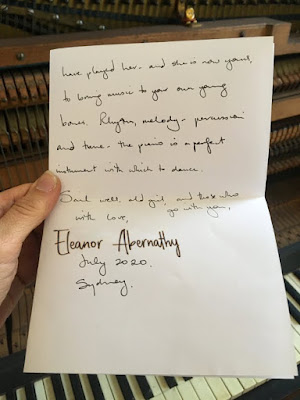 have played her - and she is now yours,
to bring music to your own young
bones. Rhythm, melody - percussion
and tone - the piano is a perfect
instrument with which to dance.
Sail well, old girl, and those who
go with you,
with love,
Eleanor Abernathy
July 2020.
Sydney.